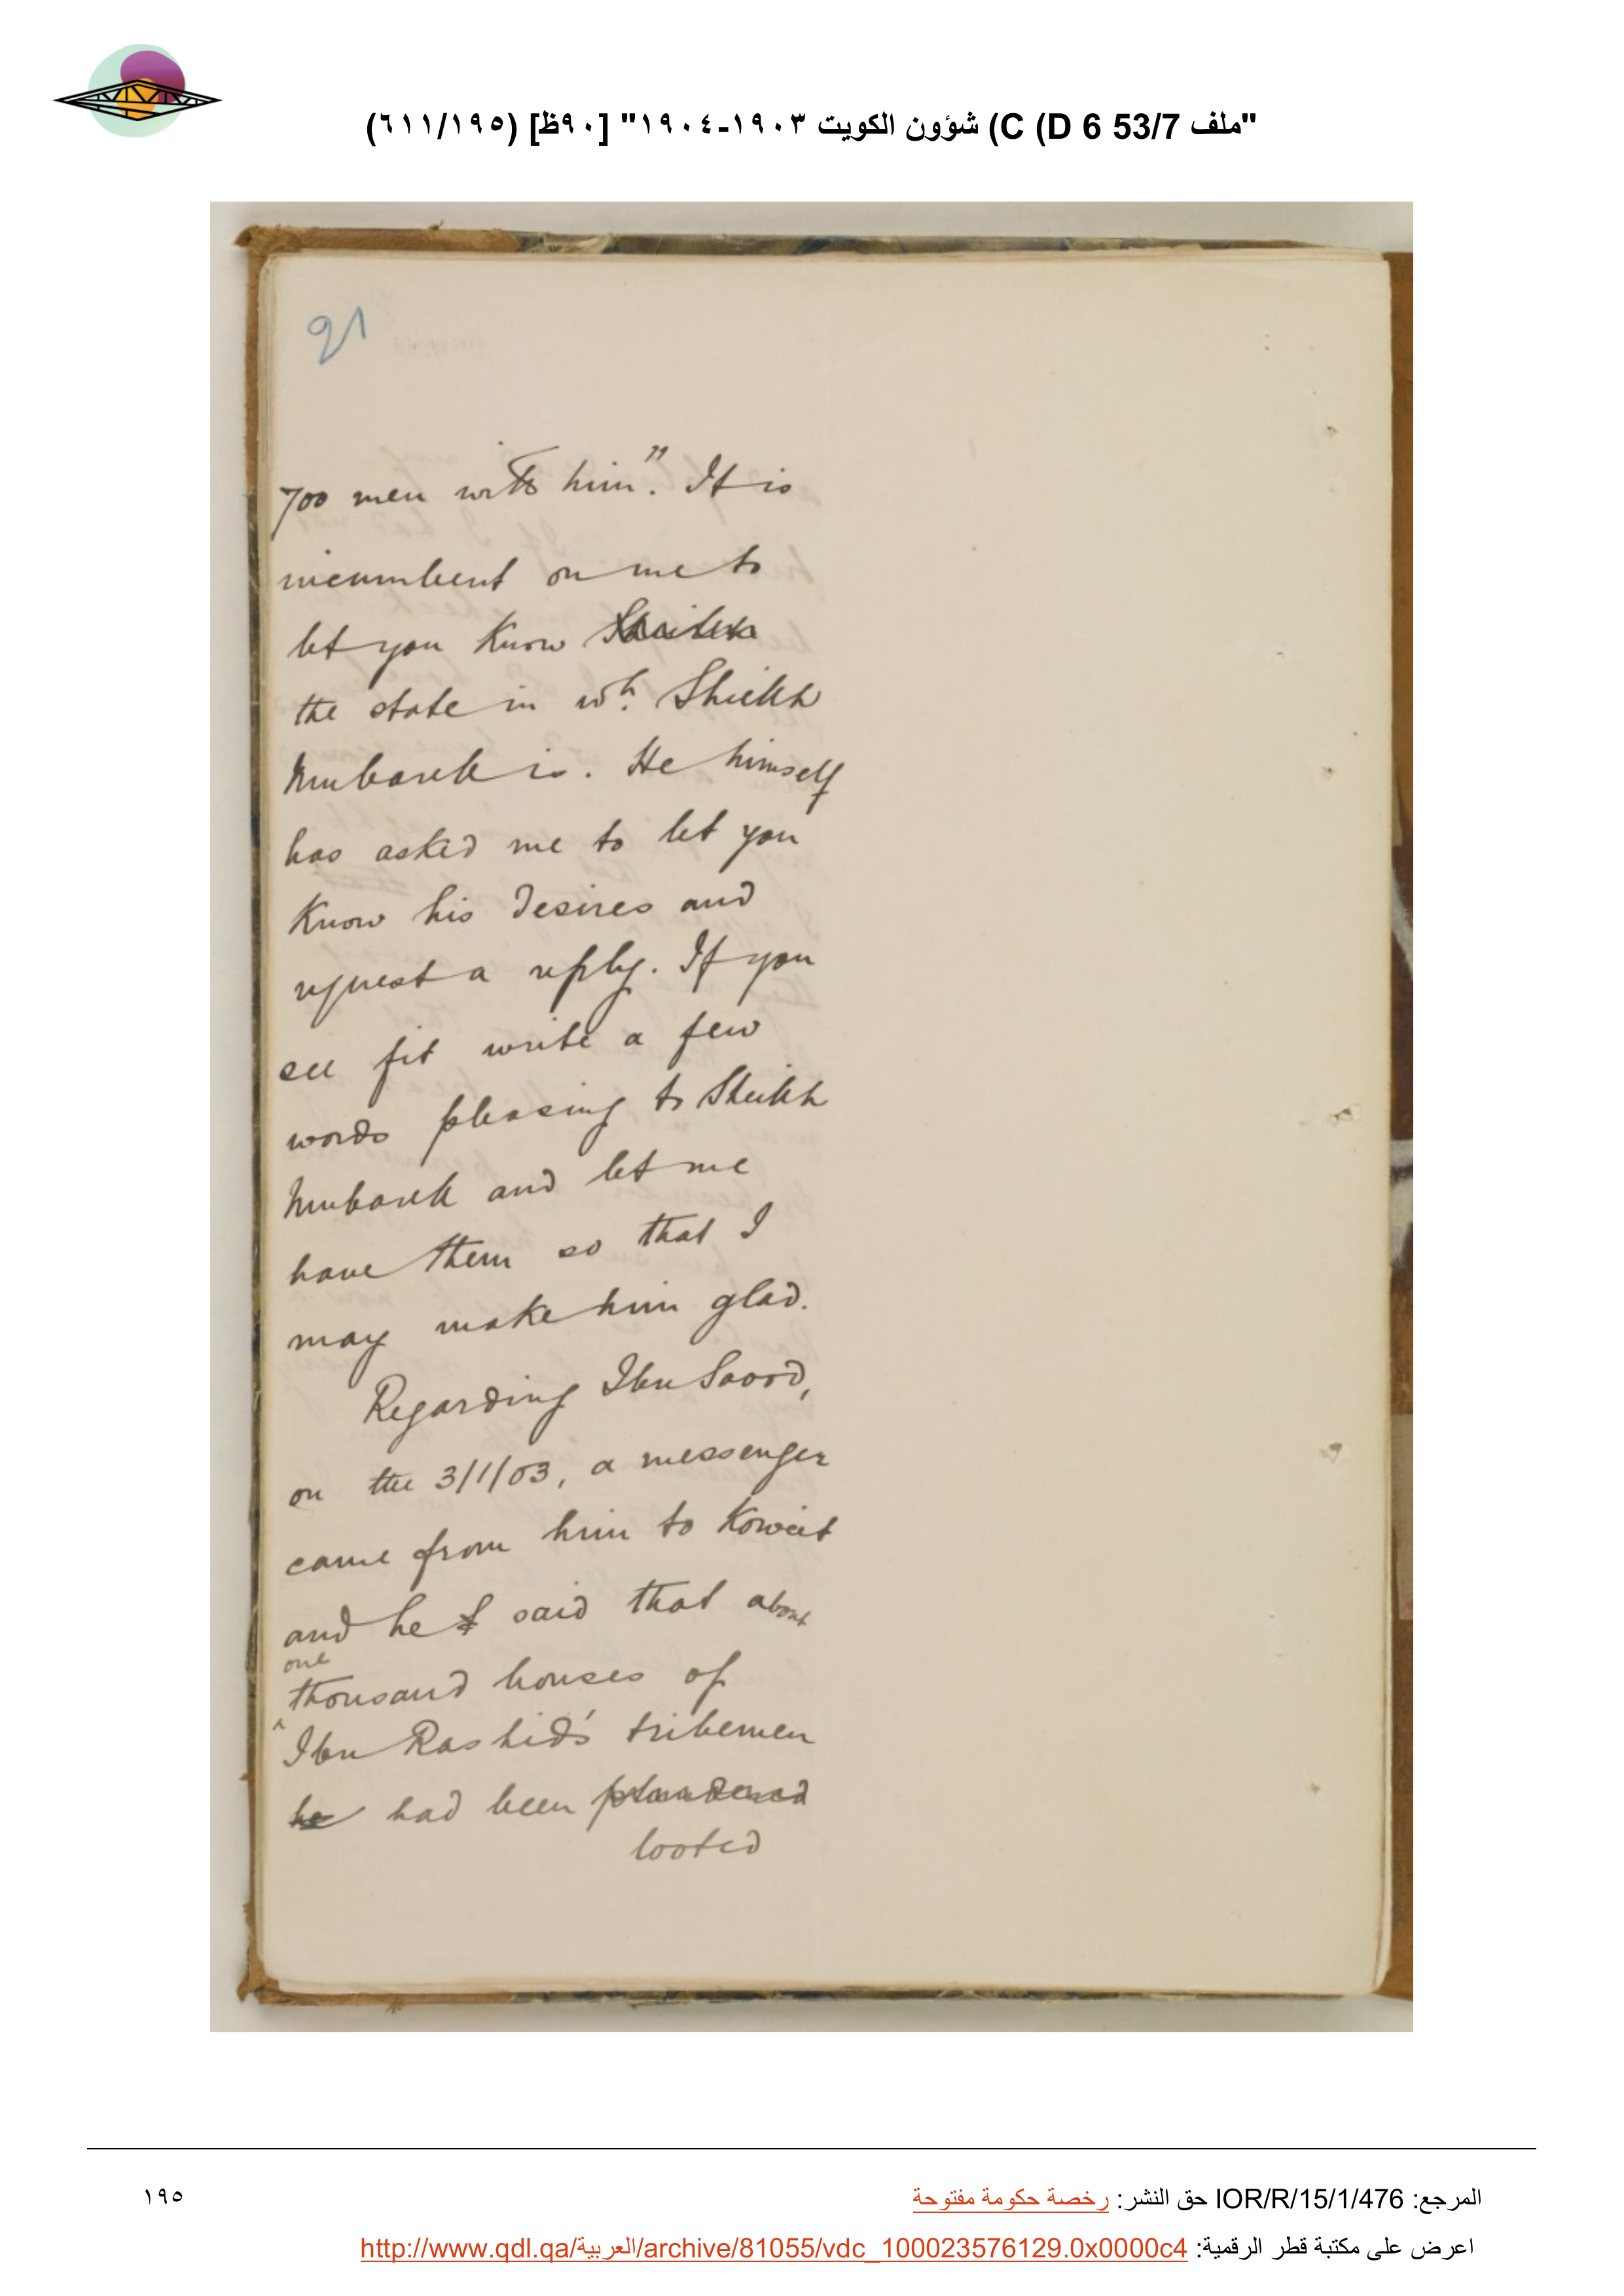 "ملف 53/7 D 6) C) شؤون الكويت ١٩٠٣-١٩٠٤" [٩٠ظ] (٦١١/١٩٥)
91
700 men with him". It is
incumbent on me to
let you know Sheikh
the state in wh. Sheikh
Mubarek is. He himself
has asked me to let you
know his desires and
request a reply. If you
see fit write a few
words pleasing to Sheikh
Mubarek and let me
have them so that I
may make him glad.
Regarding Ibn Saood,
on the 3/1/03, a messenger
came from him to Koweit
and he said that about
one
thousand houses of
Ibn Rashid's tribemen
he had been plundered
looted
المرجع: IOR/R/15/1/476 حق النشر: رخصة حكومة مفتوحة
١٩٥
اعرض على مكتبة قطر الرقمية: http://www.qdl.qa/العربية/archive/81055/vdc_100023576129.0x0000c4